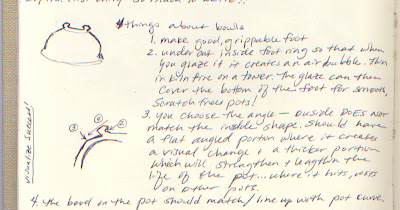 things about bowls
1. make good, grippable foot
2. under cut inside foot ring so that when
you glaze it it creates an air bubble. then
in kiln fire on a tower the glaze can then
cover the bottom of the foot for smooth,
scratch free pots!
3. you choose the angle — ouside DOES NOT
match the inside shape. should have
a flat angled portion where it creates
a visual change & a thicker portion
which will strengthen & lengthn the
life of the pot... where it hits, rests
on other pots.
4. the band on the pot should match/line up with pot curve.
3
4
2
visualize